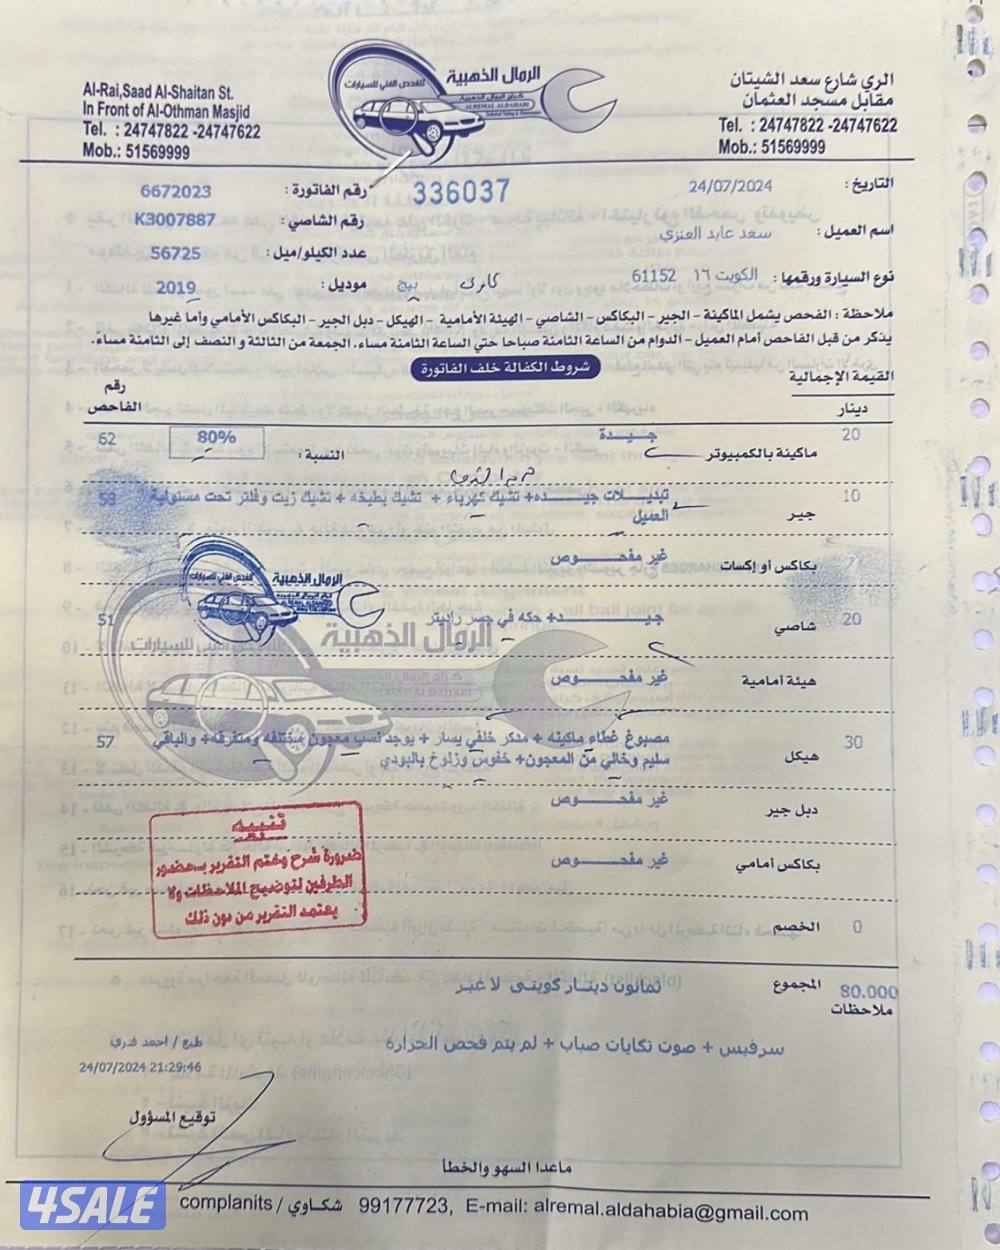 Al-Rai,Saad Al-Shaitan St.
In Front of Al-Othman Masjid
Tel. : 24747822 -24747622
Mob.: 51569999
الرمال الذهبية
للفحص الفني للسيارات
كراج الرمال الذهبية
ALREMAL ALDAHABI
الري شارع سعد الشيتان
مقابل مسجد العثمان
Tel. : 24747822 -24747622
Mob.: 51569999
التاريخ : 24/07/2024
336037
رقم الفاتورة : 6672023
اسم العميل : سعد عابد العنزي
رقم الشاصي : K3007887
نوع السيارة ورقمها : الكويت ١٦ 61152
عدد الكيلو/ميل : 56725
كامري بيج
موديل : 2019
ملاحظة : الفحص يشمل الماكينة - الجير - البكاكس - الشاصي - الهيئة الأمامية - الهيكل - دبل الجير - البكاكس الأمامي وأما غيرها
يذكر من قبل الفاحص أمام العميل - الدوام من الساعة الثامنة صباحا حتي الساعة الثامنة مساء. الجمعة من الثالثة و النصف إلى الثامنة مساء.
شروط الكفالة خلف الفاتورة
القيمة الإجمالية
دينار
رقم الفاحص
20 ماكينة بالكمبيوتر جيدة النسبة : 80% 62
10 جير تبديلات جيده+ تشيك كهرباء + تشيك بطيخه + تشيك زيت وفلتر تحت مسئولية العميل 58
بكاكس أو إكسات غير مفحوص
20 شاصي جيد+ حكه في جسر راديتر 51
هيئة أمامية غير مفحوص
30 هيكل مصبوغ غطاء ماكينه + مدكر خلفي يسار + يوجد نسب معجون مختلفه ومتفرقه+ والباقي 57
سليم وخالي من المعجون+ خفوس وزلوخ بالبودي
دبل جير غير مفحوص
بكاكس أمامي غير مفحوص
0 الخصم
الرمال الذهبية
للفحص الفني للسيارات
الرمال الذهبية
للفحص الفني للسيارات
كراج الرمال الذهبية
تنبيه
ضرورة شرح وختم التقرير بحضور
الطرفين لتوضيح الملاحظات ولا
يعتمد التقرير من دون ذلك
80.000 المجموع ثمانون دينار كويتى لا غير
ملاحظات
سرفيس + صوت تكايات صباب + لم يتم فحص الحرارة
طبع / احمد قدري
24/07/2024 21:29:46
توقيع المسؤول
ماعدا السهو والخطأ
complanits / شكاوي 99177723, E-mail: alremal.aldahabia@gmail.com
4SALE